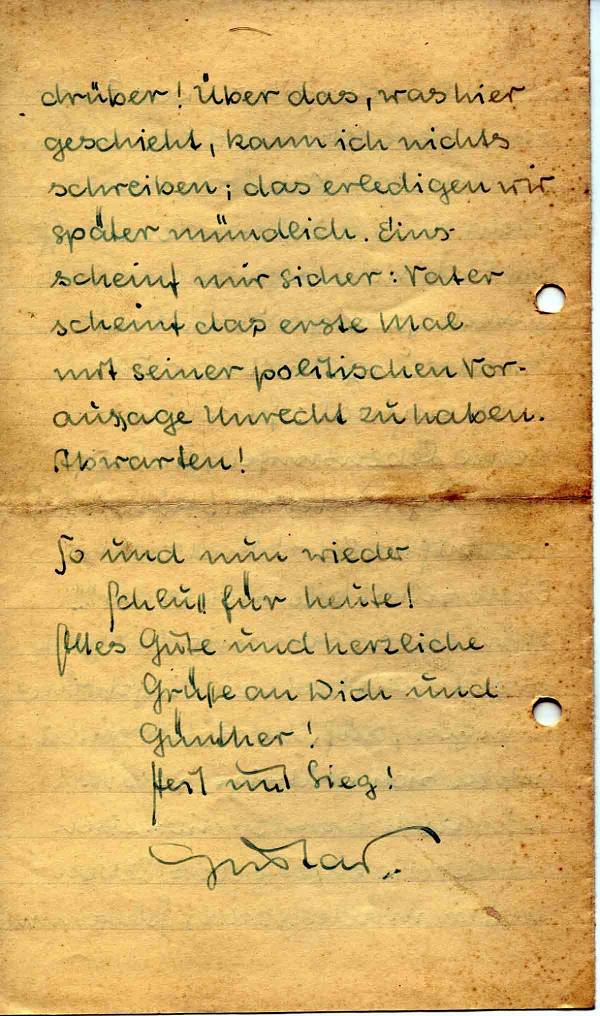 drüber! Über das, was hier
geschieht, kann ich nichts
schreiben; das erledigen wir
später mündlich. Eins-
scheint mir sicher: Vater
scheint das erste Mal
mit seiner politischen Vor-
aussage Unrecht zu haben.
Abwarten!
So und nun wieder
Schluß für heute!
Alles Gute und herzliche
Grüße an Dich und
Günther!
Heil und Sieg!
Gustav.